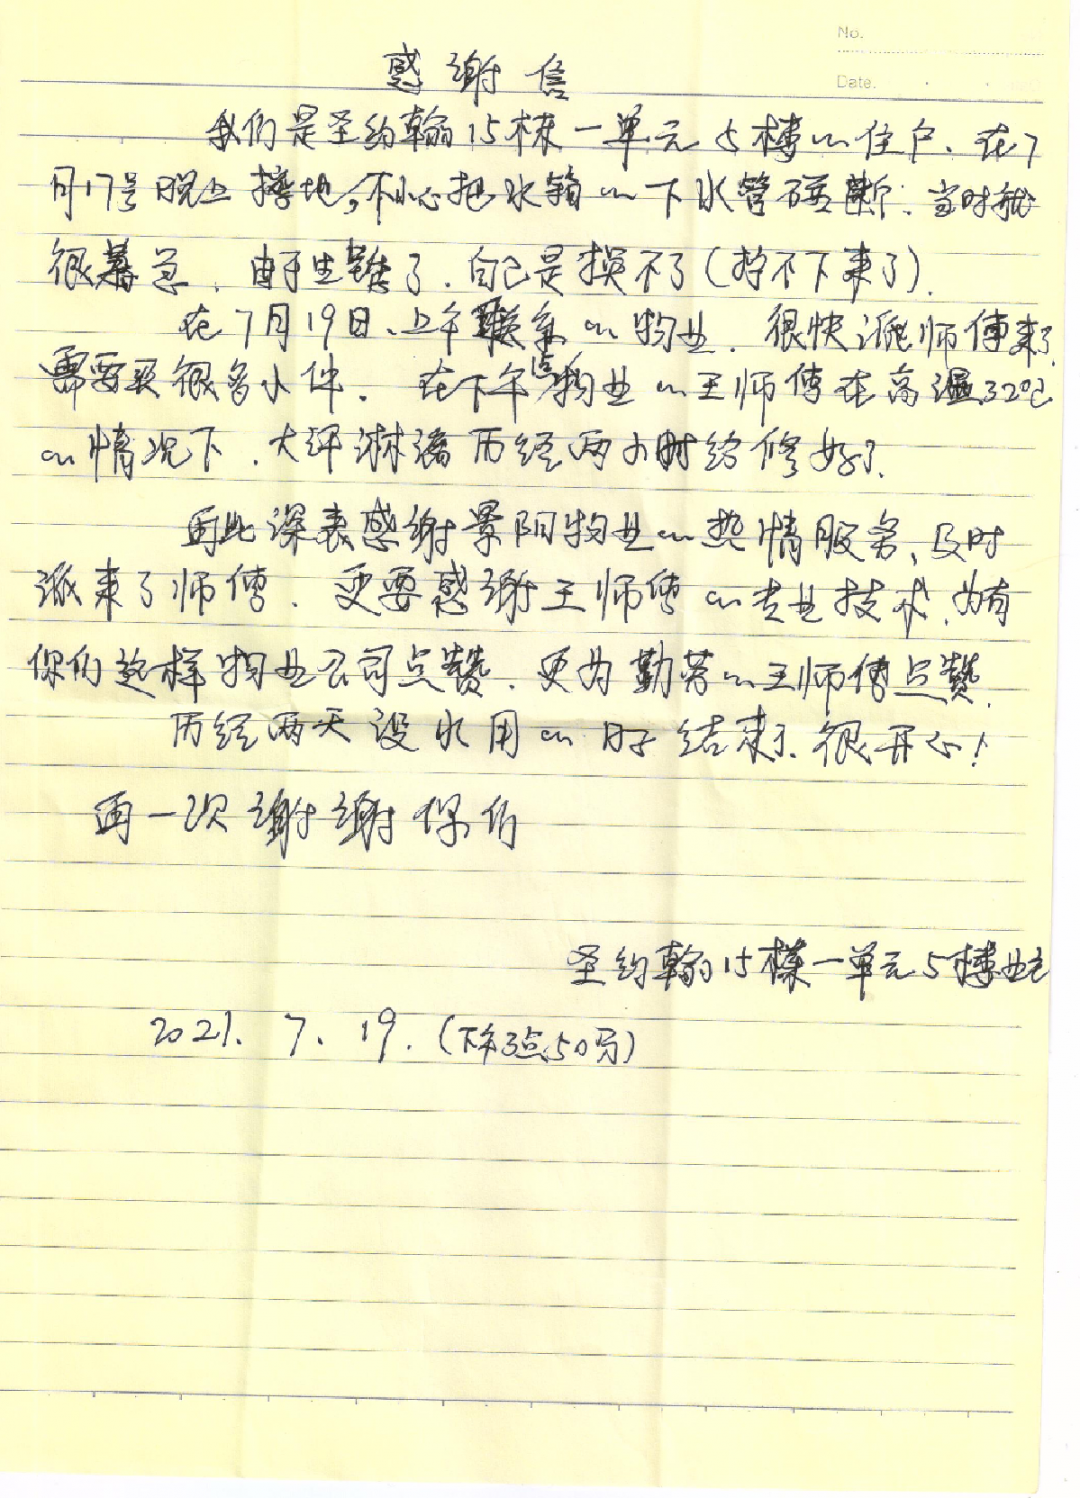 No.
Date.
感谢信
我们是圣约翰15栋一单元5楼的住户、在7
月17号晚上擦地,不小心把水箱的下水管碰断.当时就
很着急.由于生锈了.自己是换不了(拧不下来了).
在7月19日、上午联系的物业.很快派师傅来了.
需要买很多小件.在下午1点物业的王师傅在高温32℃
的情况下.大汗淋漓历经两小时给修好了.
因此深表感谢景阳物业的热情服务、及时
派来了师傅.更要感谢王师傅的专业技术.为有
你们这样物业公司点赞.更为勤劳的王师傅点赞.
历经两天没水用的日子结束了.很开心!
再一次谢谢你们
圣约翰15栋一单元5楼业主
2021.7.19.(下午3点50分)